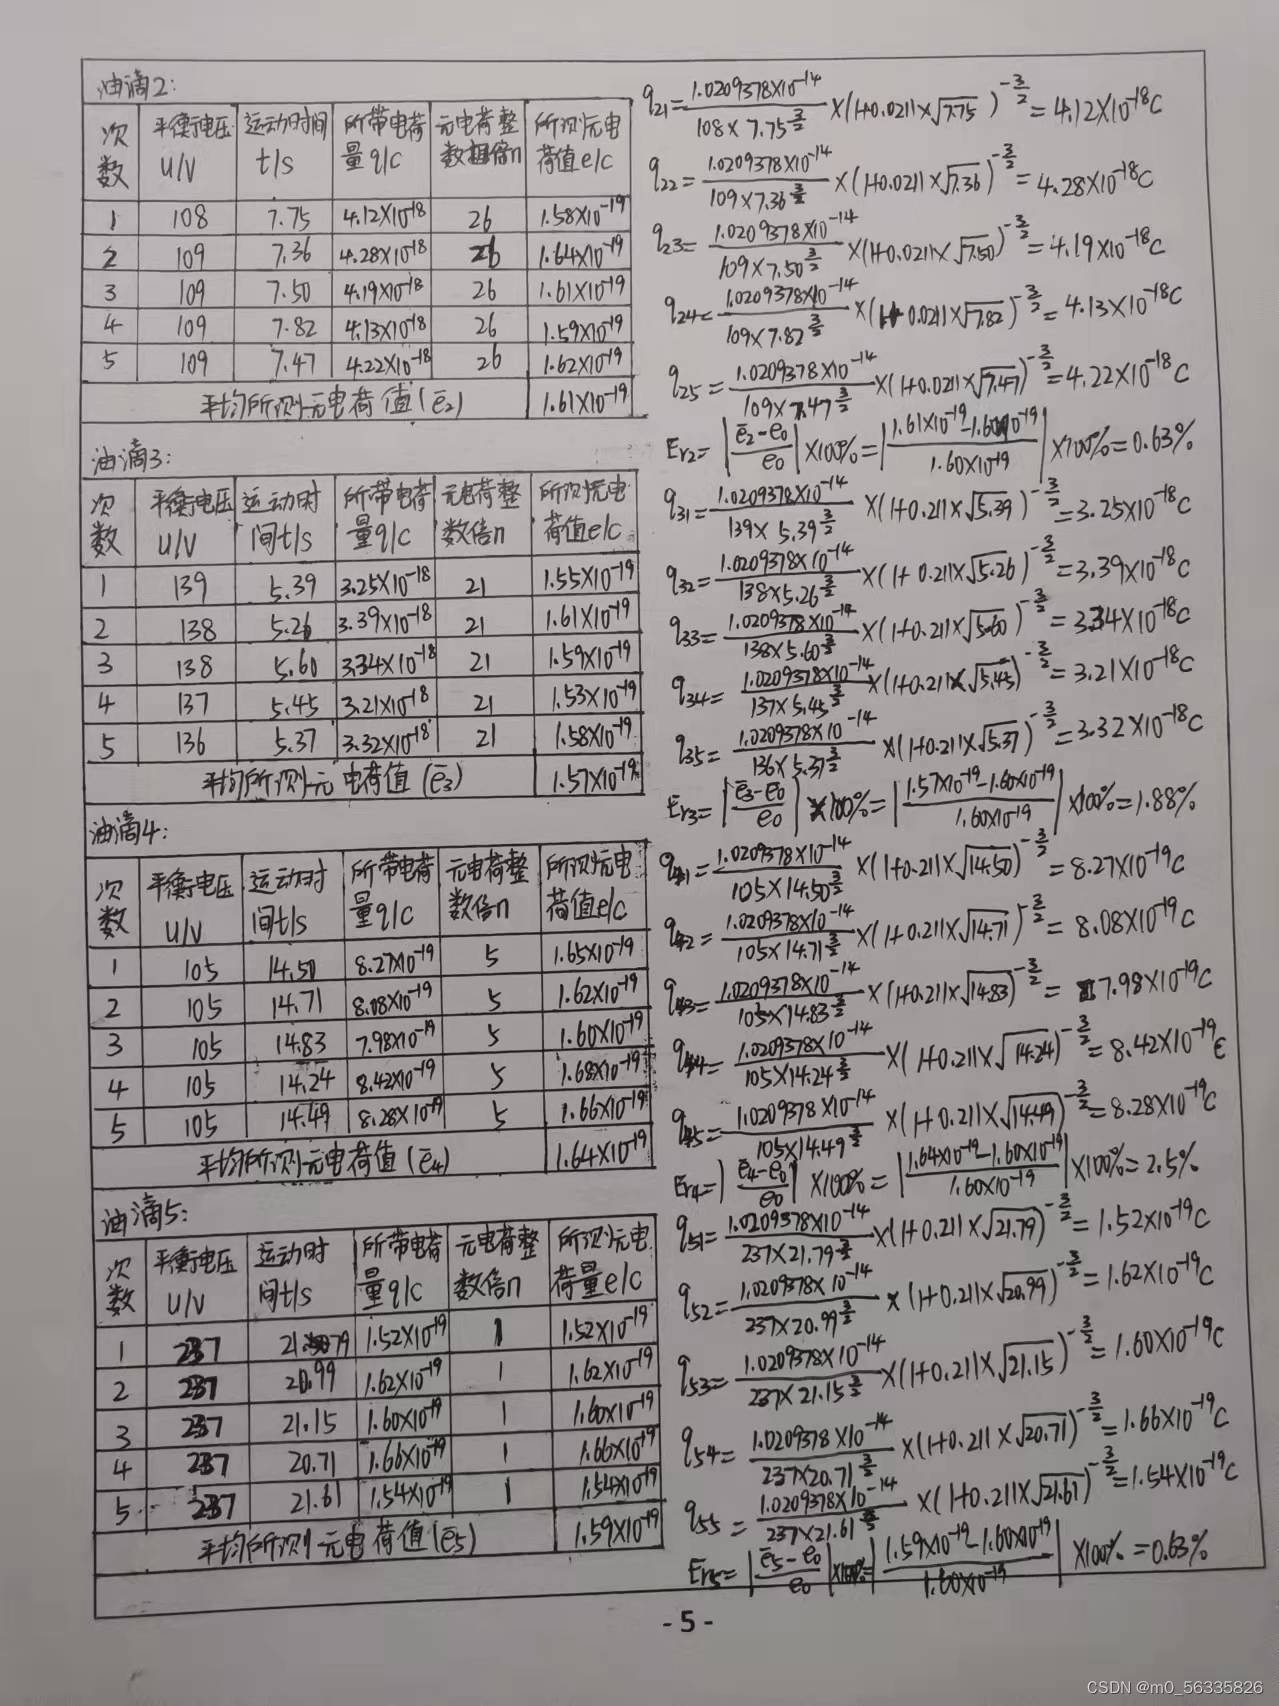 油滴2:
次数 平衡电压u/v 运动时间t/s 所带电荷量q/c 元电荷整数倍n 所测元电荷值e/c
1 108 7.75 4.12×10⁻¹⁸ 26 1.58×10⁻¹⁹
2 109 7.36 4.28×10⁻¹⁸ 26 1.64×10⁻¹⁹
3 109 7.50 4.19×10⁻¹⁸ 26 1.61×10⁻¹⁹
4 109 7.82 4.13×10⁻¹⁸ 26 1.59×10⁻¹⁹
5 109 7.47 4.22×10⁻¹⁸ 26 1.62×10⁻¹⁹
平均所测元电荷值(ē₂) 1.61×10⁻¹⁹
油滴3:
次数 平衡电压u/v 运动时间t/s 所带电荷量q/c 元电荷整数倍n 所测元电荷值e/c
1 139 5.39 3.25×10⁻¹⁸ 21 1.55×10⁻¹⁹
2 138 5.26 3.39×10⁻¹⁸ 21 1.61×10⁻¹⁹
3 138 5.60 3.34×10⁻¹⁸ 21 1.59×10⁻¹⁹
4 137 5.45 3.21×10⁻¹⁸ 21 1.53×10⁻¹⁹
5 136 5.37 3.32×10⁻¹⁸ 21 1.58×10⁻¹⁹
平均所测元电荷值(ē₃) 1.57×10⁻¹⁹
油滴4:
次数 平衡电压u/v 运动时间t/s 所带电荷量q/c 元电荷整数倍n 所测元电荷值e/c
1 105 14.50 8.27×10⁻¹⁹ 5 1.65×10⁻¹⁹
2 105 14.71 8.08×10⁻¹⁹ 5 1.62×10⁻¹⁹
3 105 14.83 7.98×10⁻¹⁹ 5 1.60×10⁻¹⁹
4 105 14.24 8.42×10⁻¹⁹ 5 1.68×10⁻¹⁹
5 105 14.49 8.28×10⁻¹⁹ 5 1.66×10⁻¹⁹
平均所测元电荷值(ē₄) 1.64×10⁻¹⁹
油滴5:
次数 平衡电压u/v 运动时间t/s 所带电荷量q/c 元电荷整数倍n 所测元电荷量e/c
1 237 21.79 1.52×10⁻¹⁹ 1 1.52×10⁻¹⁹
2 237 20.99 1.62×10⁻¹⁹ 1 1.62×10⁻¹⁹
3 237 21.15 1.60×10⁻¹⁹ 1 1.60×10⁻¹⁹
4 237 20.71 1.66×10⁻¹⁹ 1 1.66×10⁻¹⁹
5 237 21.61 1.54×10⁻¹⁹ 1 1.54×10⁻¹⁹
平均所测元电荷值(ē₅) 1.59×10⁻¹⁹
q₂₁=1.0209378×10⁻¹⁴/(108×7.75^(3/2))×(1+0.0211×√7.75)^(-3/2)=4.12×10⁻¹⁸C
q₂₂=1.0209378×10⁻¹⁴/(109×7.36^(3/2))×(1+0.0211×√7.36)^(-3/2)=4.28×10⁻¹⁸C
q₂₃=1.0209378×10⁻¹⁴/(109×7.50^(3/2))×(1+0.0211×√7.50)^(-3/2)=4.19×10⁻¹⁸C
q₂₄=1.0209378×10⁻¹⁴/(109×7.82^(3/2))×(1+0.0211×√7.82)^(-3/2)=4.13×10⁻¹⁸C
q₂₅=1.0209378×10⁻¹⁴/(109×7.47^(3/2))×(1+0.0211×√7.47)^(-3/2)=4.22×10⁻¹⁸C
Er₂=|(ē₂-e₀)/e₀|×100%=|(1.61×10⁻¹⁹-1.60×10⁻¹⁹)/1.60×10⁻¹⁹|×100%=0.63%
q₃₁=1.0209378×10⁻¹⁴/(139×5.39^(3/2))×(1+0.211×√5.39)^(-3/2)=3.25×10⁻¹⁸C
q₃₂=1.0209378×10⁻¹⁴/(138×5.26^(3/2))×(1+0.211×√5.26)^(-3/2)=3.39×10⁻¹⁸C
q₃₃=1.0209378×10⁻¹⁴/(138×5.60^(3/2))×(1+0.211×√5.60)^(-3/2)=3.34×10⁻¹⁸C
q₃₄=1.0209378×10⁻¹⁴/(137×5.45^(3/2))×(1+0.211×√5.45)^(-3/2)=3.21×10⁻¹⁸C
q₃₅=1.0209378×10⁻¹⁴/(136×5.37^(3/2))×(1+0.211×√5.37)^(-3/2)=3.32×10⁻¹⁸C
Er₃=|(ē₃-e₀)/e₀|×100%=|(1.57×10⁻¹⁹-1.60×10⁻¹⁹)/1.60×10⁻¹⁹|×100%=1.88%
q₄₁=1.0209378×10⁻¹⁴/(105×14.50^(3/2))×(1+0.211×√14.50)^(-3/2)=8.27×10⁻¹⁹C
q₄₂=1.0209378×10⁻¹⁴/(105×14.71^(3/2))×(1+0.211×√14.71)^(-3/2)=8.08×10⁻¹⁹C
q₄₃=1.0209378×10⁻¹⁴/(105×14.83^(3/2))×(1+0.211×√14.83)^(-3/2)=7.98×10⁻¹⁹C
q₄₄=1.0209378×10⁻¹⁴/(105×14.24^(3/2))×(1+0.211×√14.24)^(-3/2)=8.42×10⁻¹⁹C
q₄₅=1.0209378×10⁻¹⁴/(105×14.49^(3/2))×(1+0.211×√14.49)^(-3/2)=8.28×10⁻¹⁹C
Er₄=|(ē₄-e₀)/e₀|×100%=|(1.64×10⁻¹⁹-1.60×10⁻¹⁹)/1.60×10⁻¹⁹|×100%=2.5%
q₅₁=1.0209378×10⁻¹⁴/(237×21.79^(3/2))×(1+0.211×√21.79)^(-3/2)=1.52×10⁻¹⁹C
q₅₂=1.0209378×10⁻¹⁴/(237×20.99^(3/2))×(1+0.211×√20.99)^(-3/2)=1.62×10⁻¹⁹C
q₅₃=1.0209378×10⁻¹⁴/(237×21.15^(3/2))×(1+0.211×√21.15)^(-3/2)=1.60×10⁻¹⁹C
q₅₄=1.0209378×10⁻¹⁴/(237×20.71^(3/2))×(1+0.211×√20.71)^(-3/2)=1.66×10⁻¹⁹C
q₅₅=1.0209378×10⁻¹⁴/(237×21.61^(3/2))×(1+0.211×√21.61)^(-3/2)=1.54×10⁻¹⁹C
Er₅=|(ē₅-e₀)/e₀|×100%=|(1.59×10⁻¹⁹-1.60×10⁻¹⁹)/1.60×10⁻¹⁹|×100%=0.63%
- 5 -
CSDN @m0_56335826